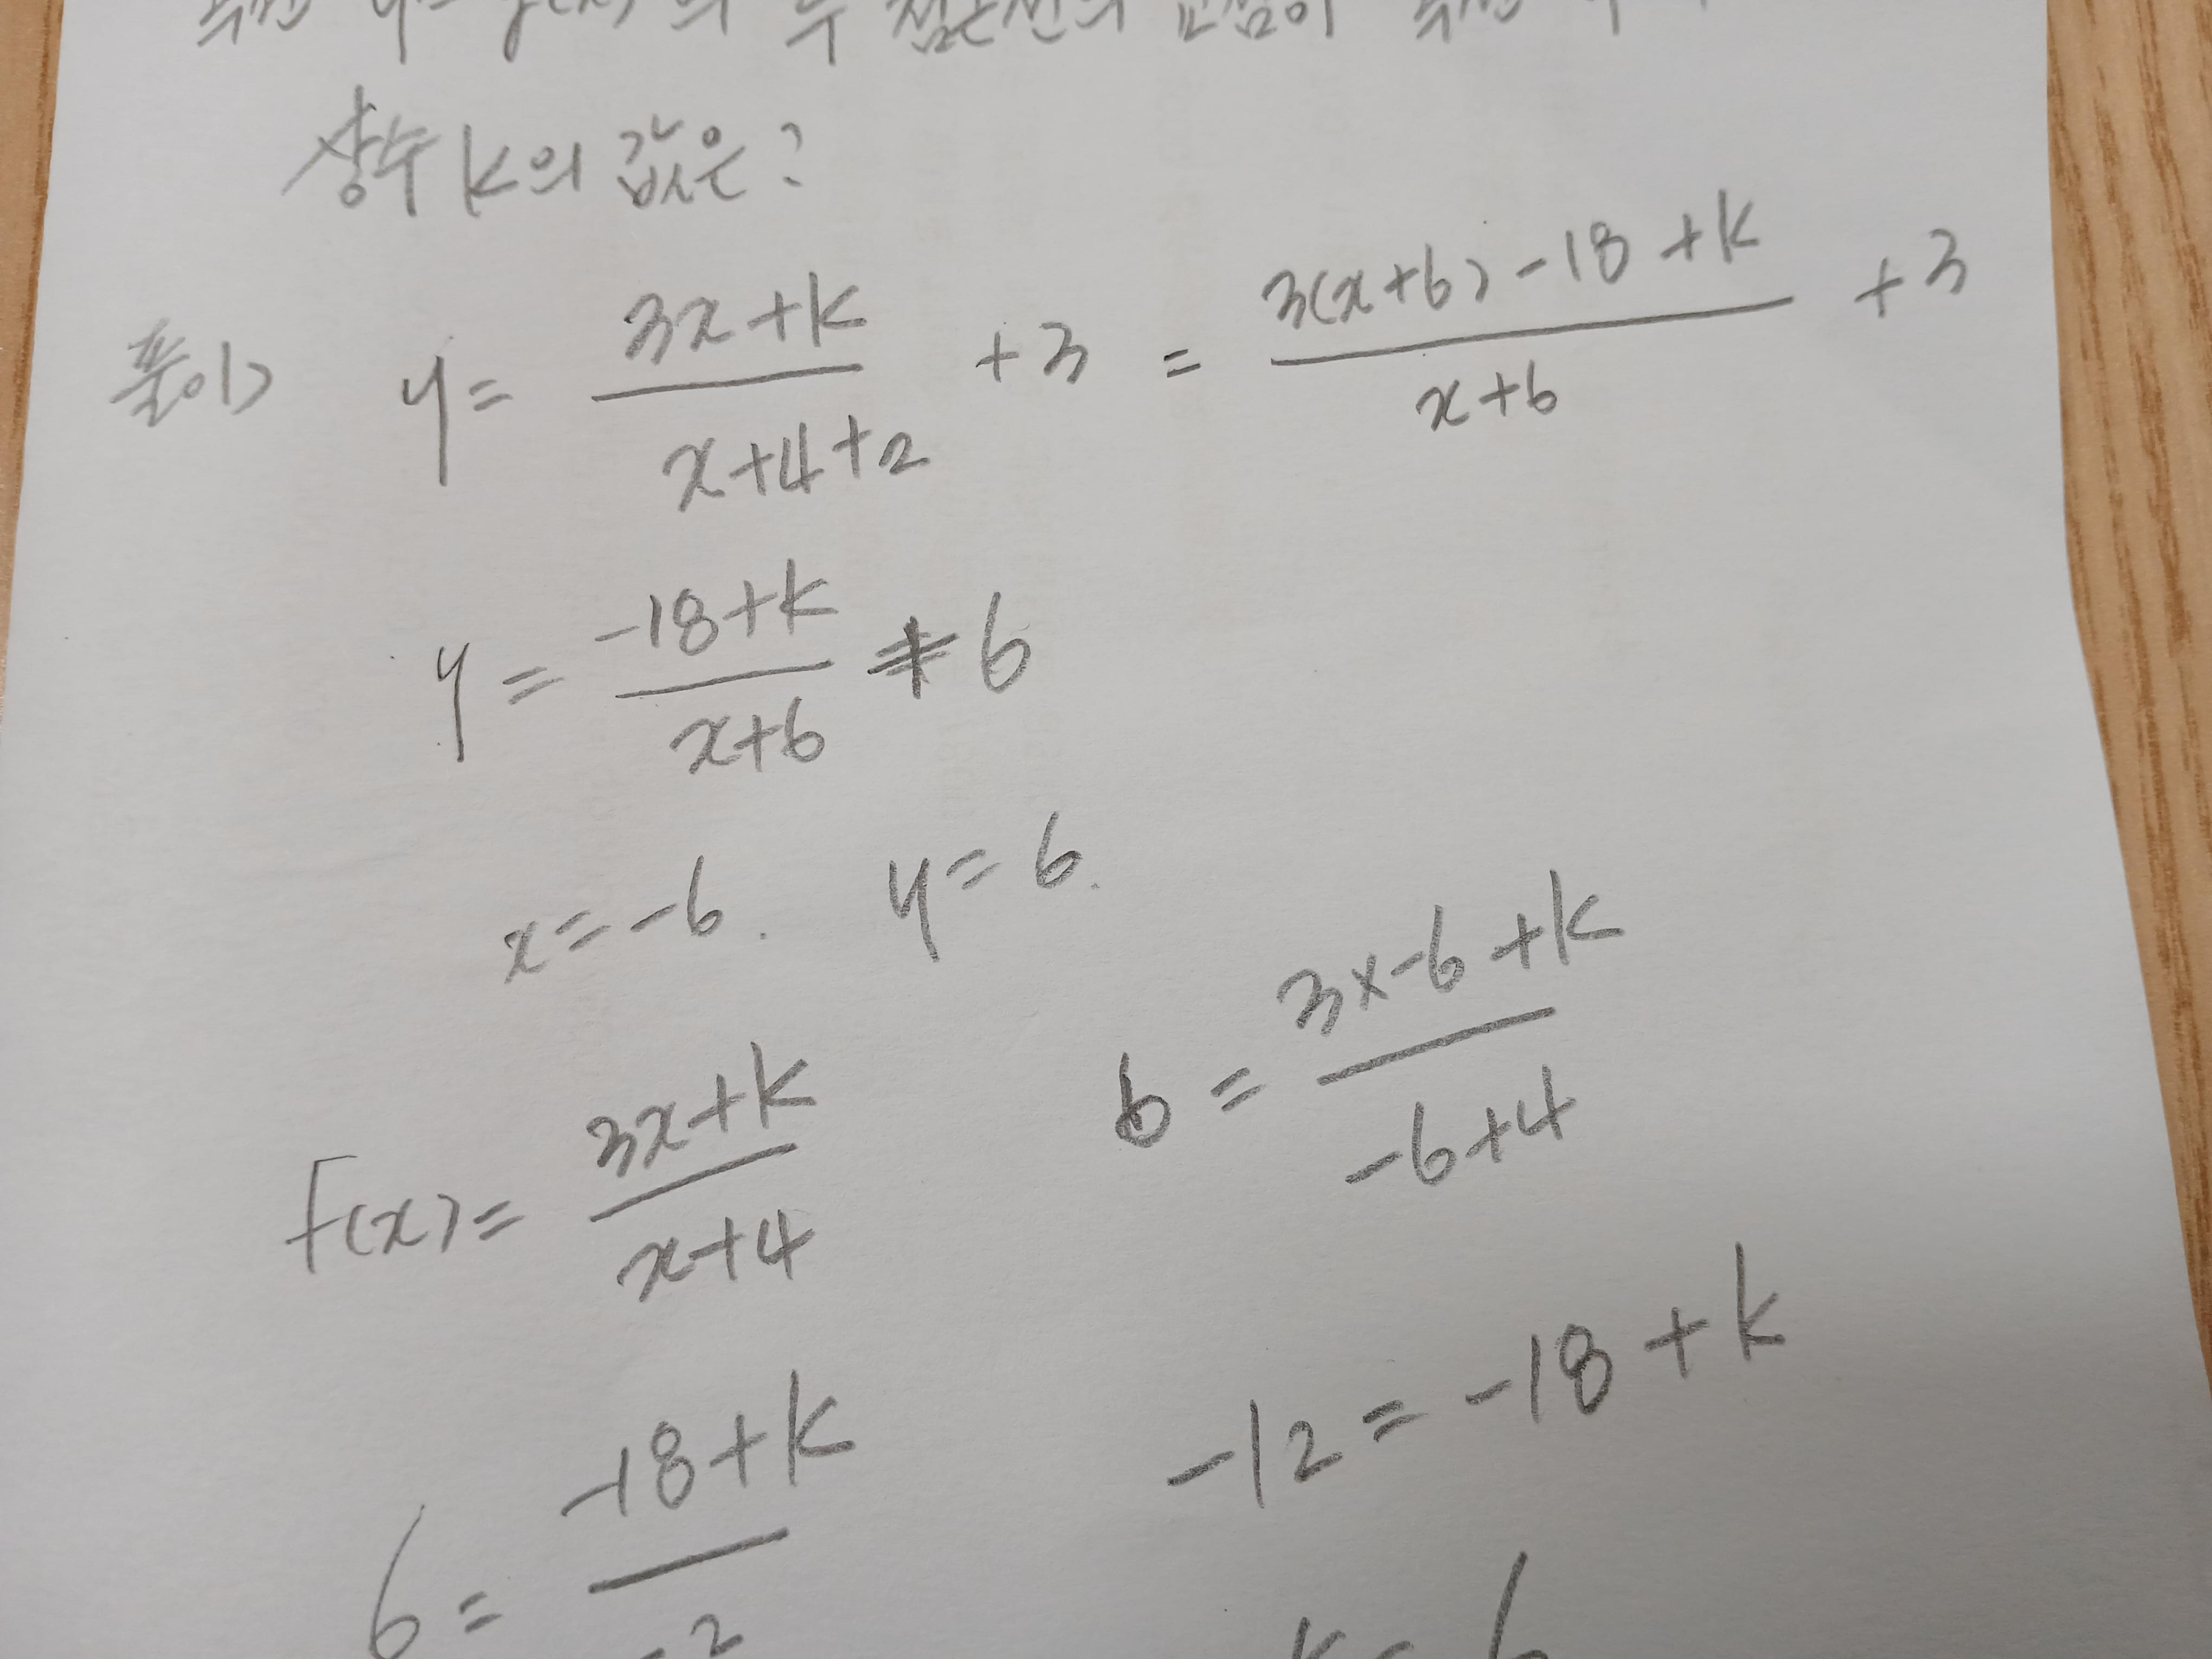 두 점근선의 교점이
상수 k의 값은?
풀이> y = (3x+k)/(x+4+2) +3 = (3(x+6)-18+k)/(x+6) +3
y = (-18+k)/(x+6) + 6
x = -6. y = 6.
f(x) = (3x+k)/(x+4)
6 = (3x-6+k)/(-6+4)
6 = (-18+k)/-2
-12 = -18+k
k = 6